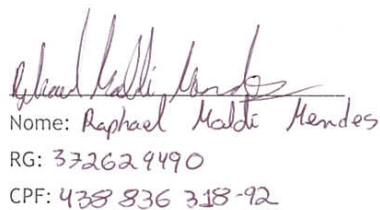 Raphael Maldi Mendes
Nome: Raphael Maldi Mendes
RG: 372629490
CPF: 438 836 318-92